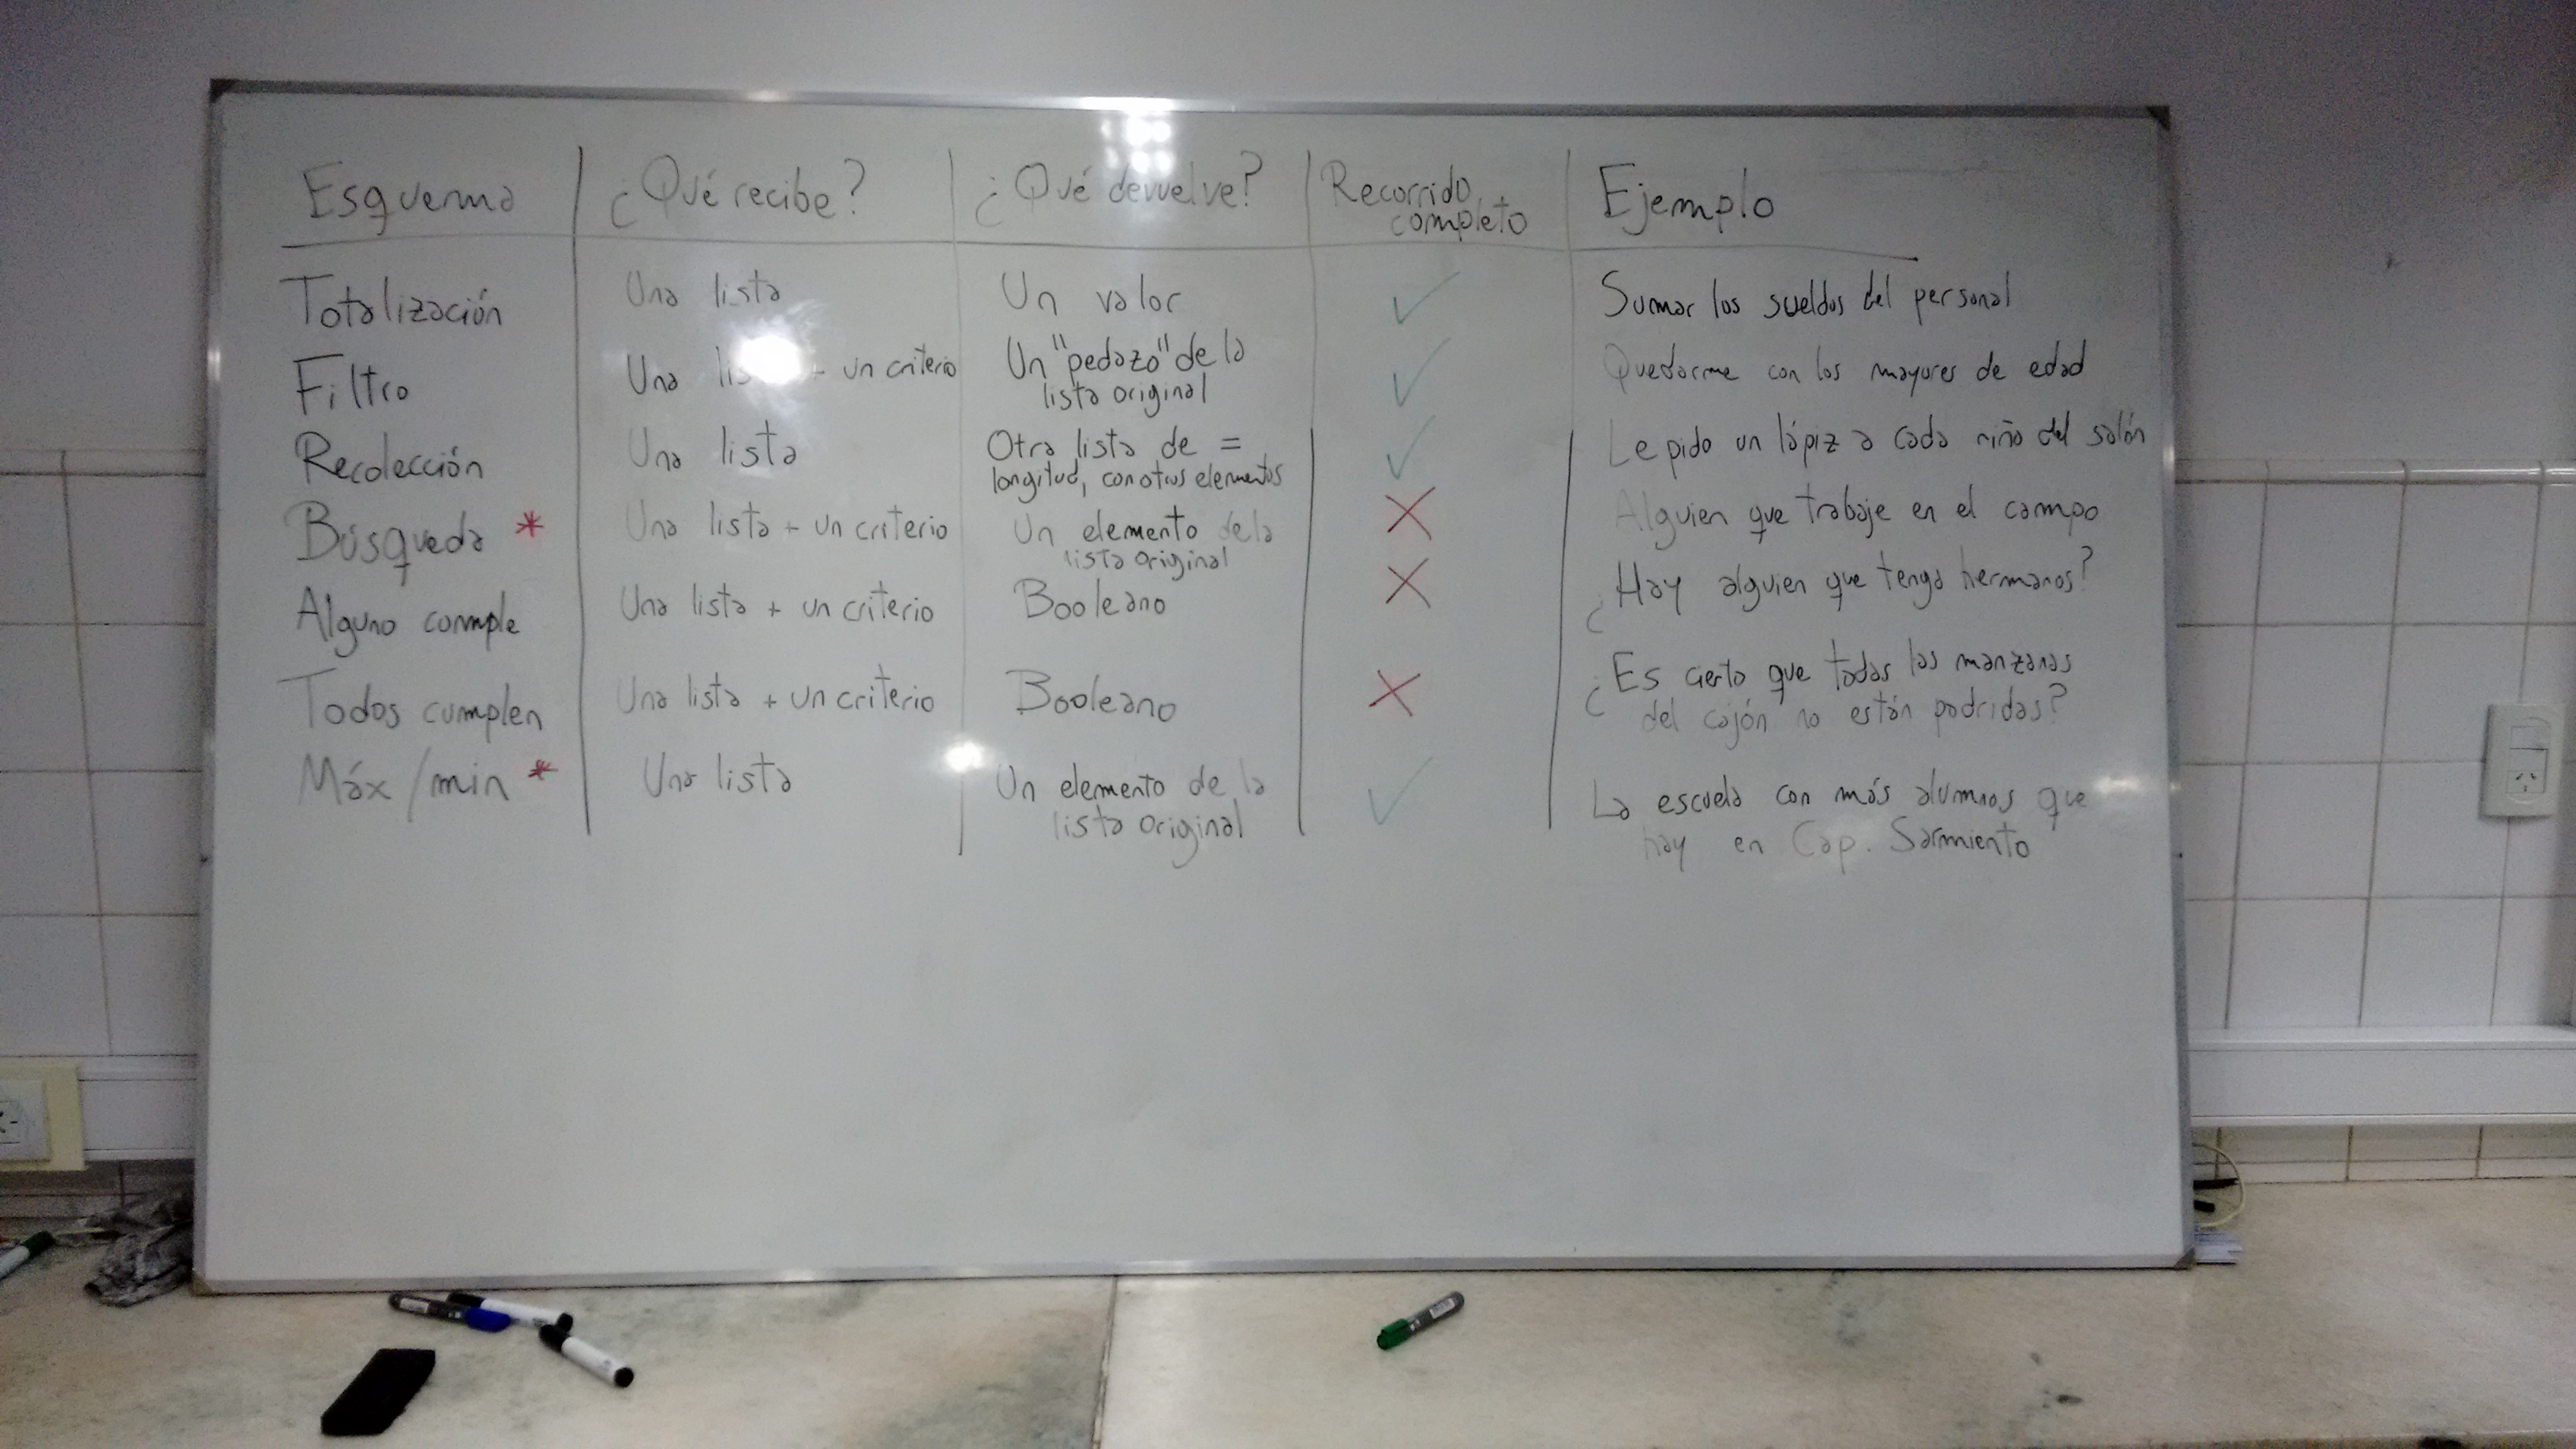 Esquema ¿Qué recibe? ¿Qué devuelve? Recorrido completo Ejemplo
Totalización Una lista Un valor ✓ Sumar los sueldos del personal
Filtro Una + un criterio Un "pedazo" de la lista original ✓ Quedarme con los mayores de edad
Recolección Una lista Otra lista de = longitud, con otros elementos ✓ Le pido un lápiz a cada niño del salón
Búsqueda * Una lista + un criterio Un elemento de la lista original X Alguien que trabaje en el campo
Alguno cumple Una lista + un criterio Booleano X ¿Hay alguien que tenga hermanos?
Todos cumplen Una lista + un criterio Booleano X ¿Es cierto que todas las manzanas del cajón no están podridas?
Máx/min * Una lista Un elemento de la lista original ✓ La escuela con más alumnos que hay en Cap. Sarmiento